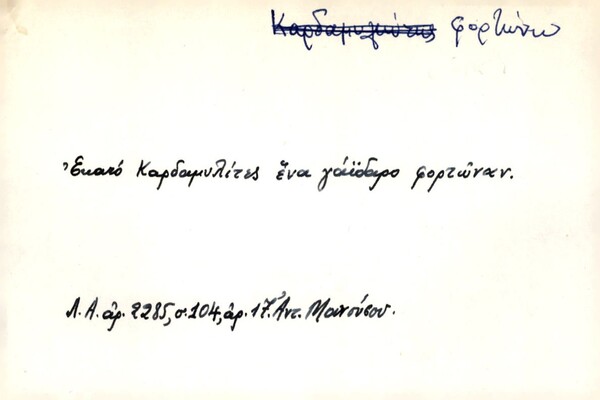 Καρδαμυλίτης φορτώνω
Ἑκατό Καρδαμυλίτες ἕνα γάϊδαρο φορτῶναν.
Λ.Α. ἀρ. 2285, σ. 104, ἀρ. 17. Ἀντ. Μανούσου.